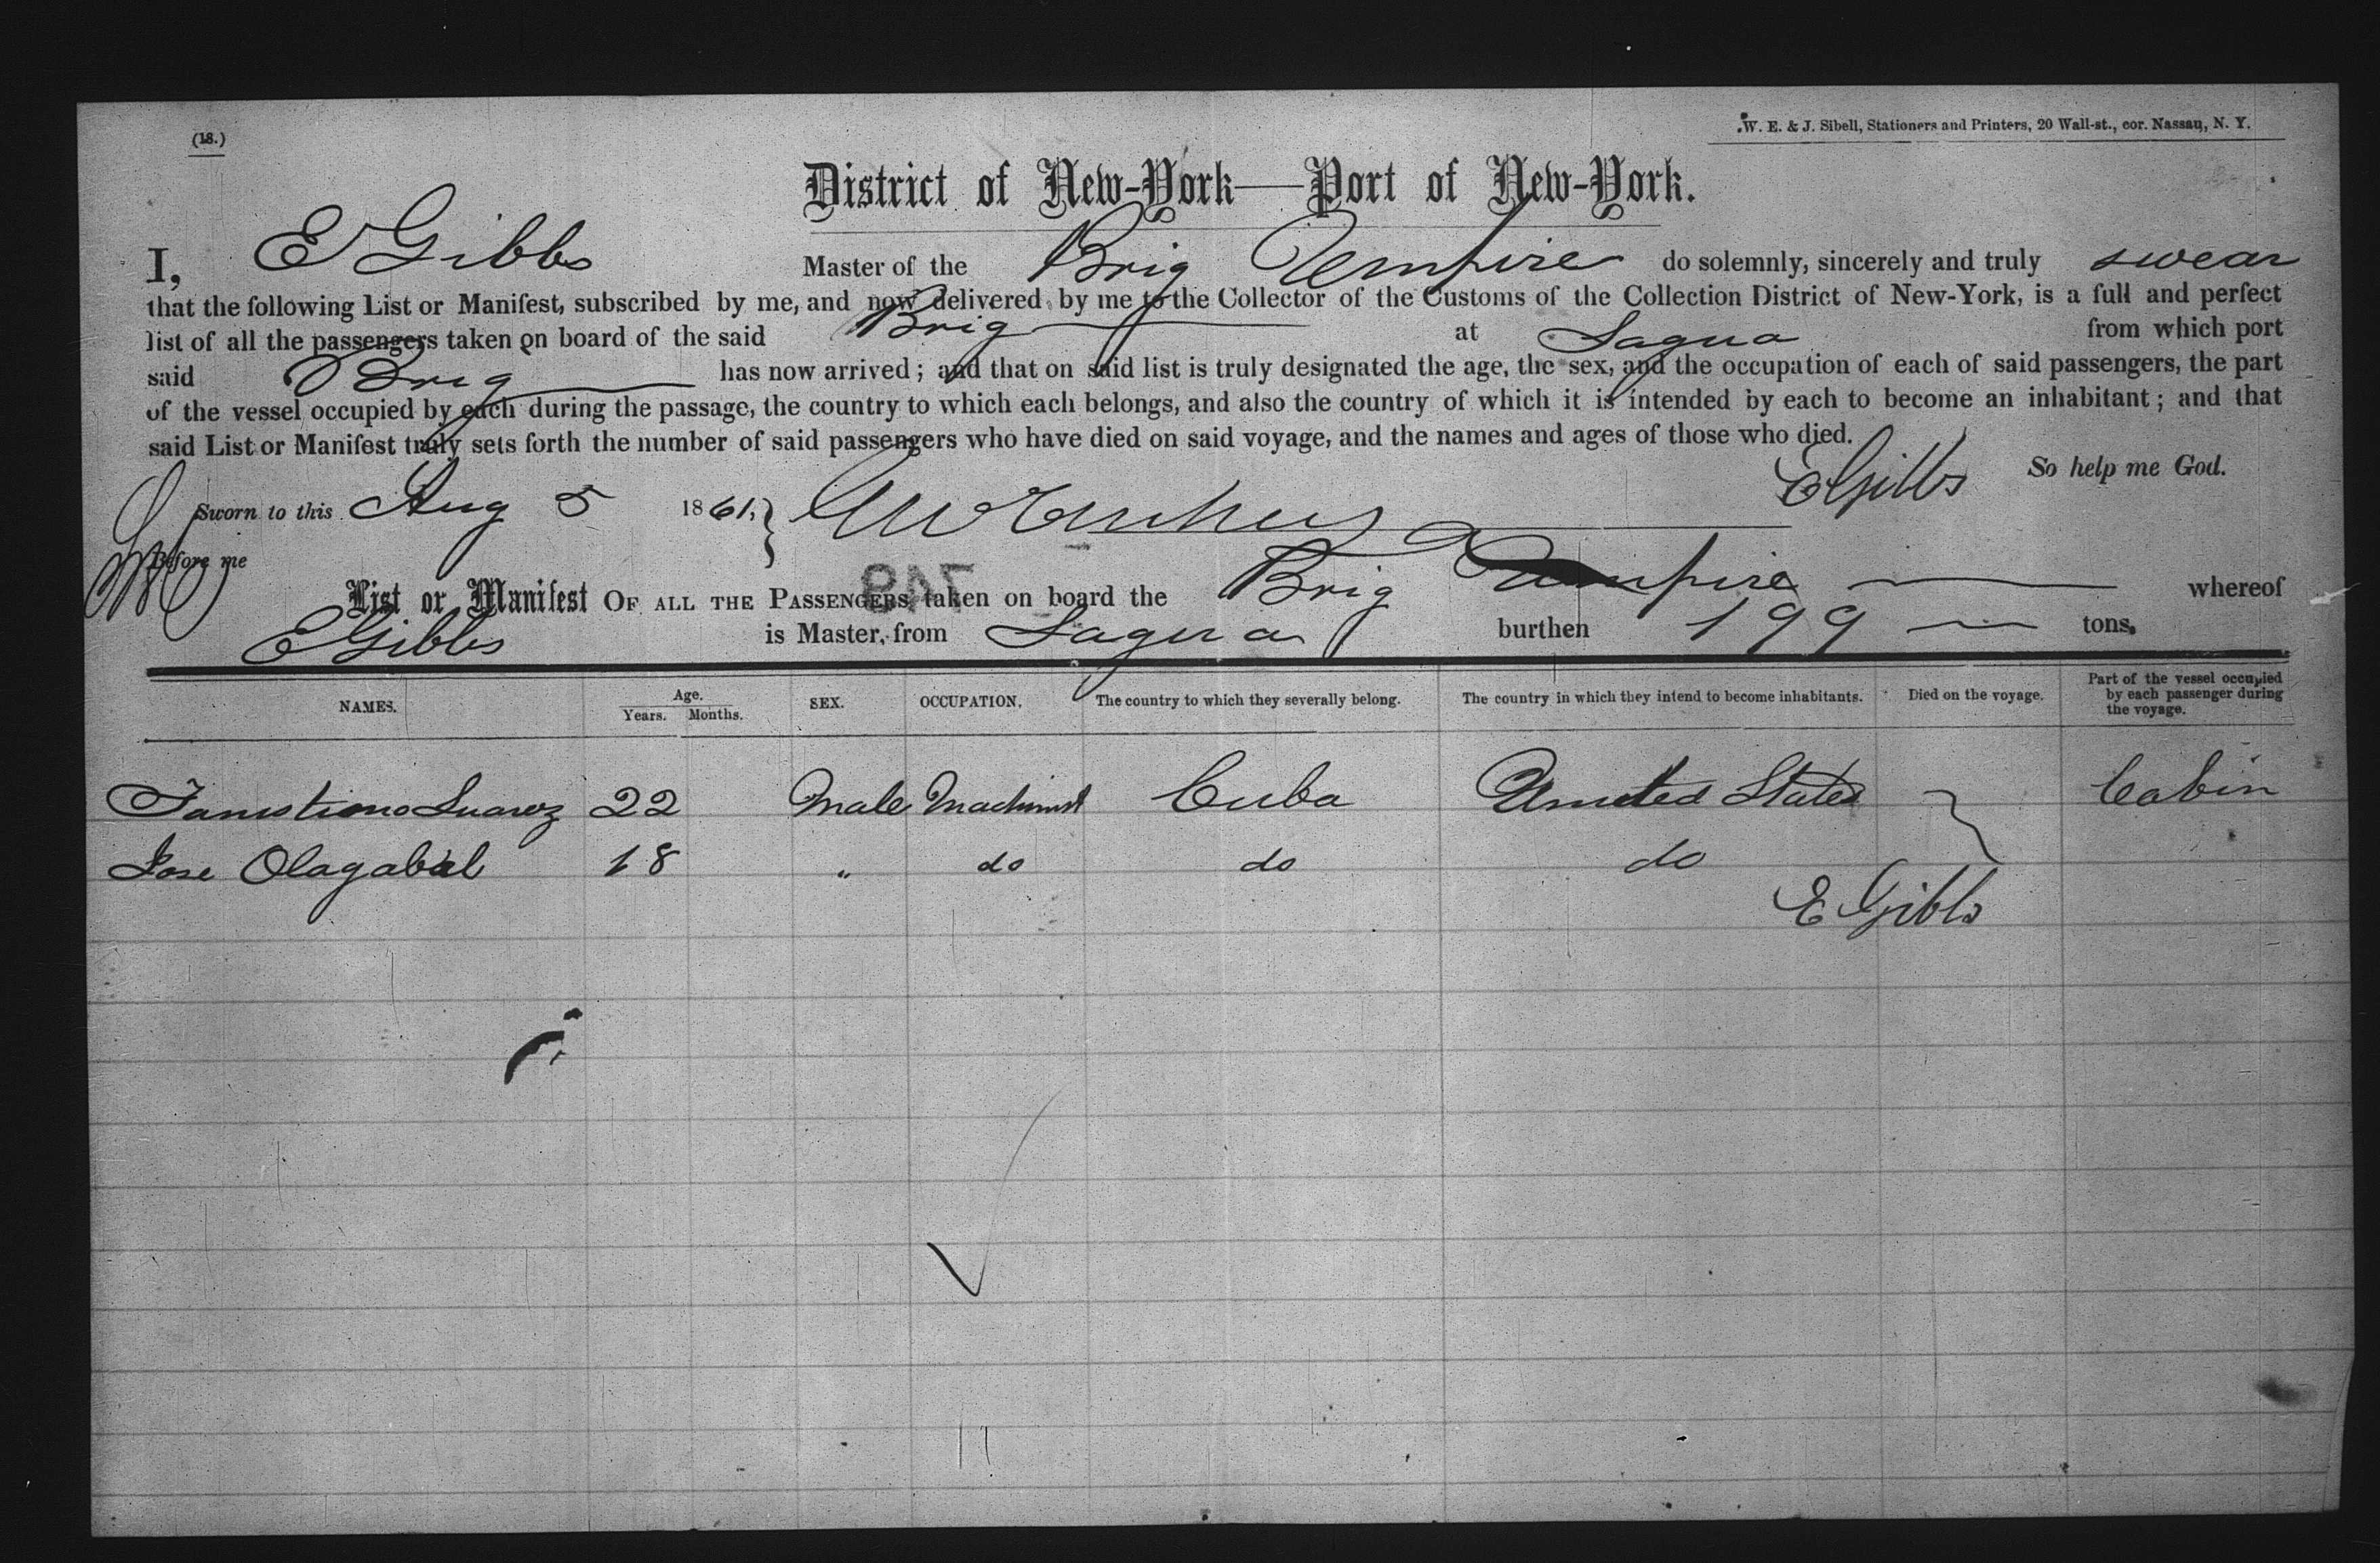 (18.)
W. E. & J. Sibell, Stationers and Printers, 20 Wall-st., cor. Nassau, N. Y.
District of New-York—Port of New-York.
I, E Gibbs Master of the Brig Umpire do solemnly, sincerely and truly swear
that the following List or Manifest, subscribed by me, and now delivered by me to the Collector of the Customs of the Collection District of New-York, is a full and perfect
list of all the passengers taken on board of the said Brig at Sagua from which port
said Brig has now arrived; and that on said list is truly designated the age, the sex, and the occupation of each of said passengers, the part
of the vessel occupied by each during the passage, the country to which each belongs, and also the country of which it is intended by each to become an inhabitant; and that
said List or Manifest truly sets forth the number of said passengers who have died on said voyage, and the names and ages of those who died.
So help me God.
E Gibbs
Sworn to this Aug 5 1861,
Before me
List or Manifest OF ALL THE PASSENGERS taken on board the Brig Umpire whereof
E Gibbs is Master, from Sagua burthen 199 tons.
NAMES. Age. Years. Months. SEX. OCCUPATION. The country to which they severally belong. The country in which they intend to become inhabitants. Died on the voyage. Part of the vessel occupied by each passenger during the voyage.
Suarez 22 Male Machinist Cuba United States Cabin
Jose Olagabal 18 " do do do
E Gibbs